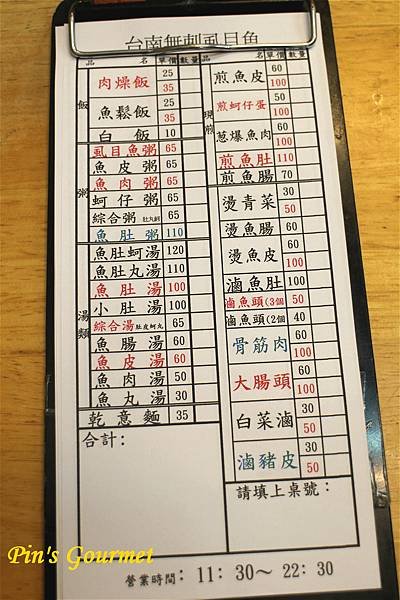 台南無刺虱目魚
品 名 單價 數量 品 名 單價 數量
飯
肉燥飯 25 35
魚鬆飯 25 35
白飯 10
粥
虱目魚粥 65
魚皮粥 65
魚肉粥 65
蚵仔粥 65
綜合粥 肚丸蚵 65
魚肚粥 110
湯類
魚肚蚵湯 120
魚肚丸湯 110
魚肚湯 100
小肚湯 100
綜合湯 肚皮蚵丸 65
魚腸湯 60
魚皮湯 60
魚肉湯 50
魚丸湯 30
乾意麵 35
合計：
現煎
煎魚皮 60 100
煎蚵仔蛋 60 100
蔥爆魚肉 60 100
煎魚肚 110
煎魚腸 70
燙青菜 30 50
燙魚腸 60
燙魚皮 60
滷魚肚 100
滷魚頭(3個 50
滷魚頭(2個 40
骨筋肉 60 100
大腸頭 60 100
白菜滷 30 50
滷豬皮 30 50
請填上桌號：
營業時間：11：30～22：30
Pin's Gourmet